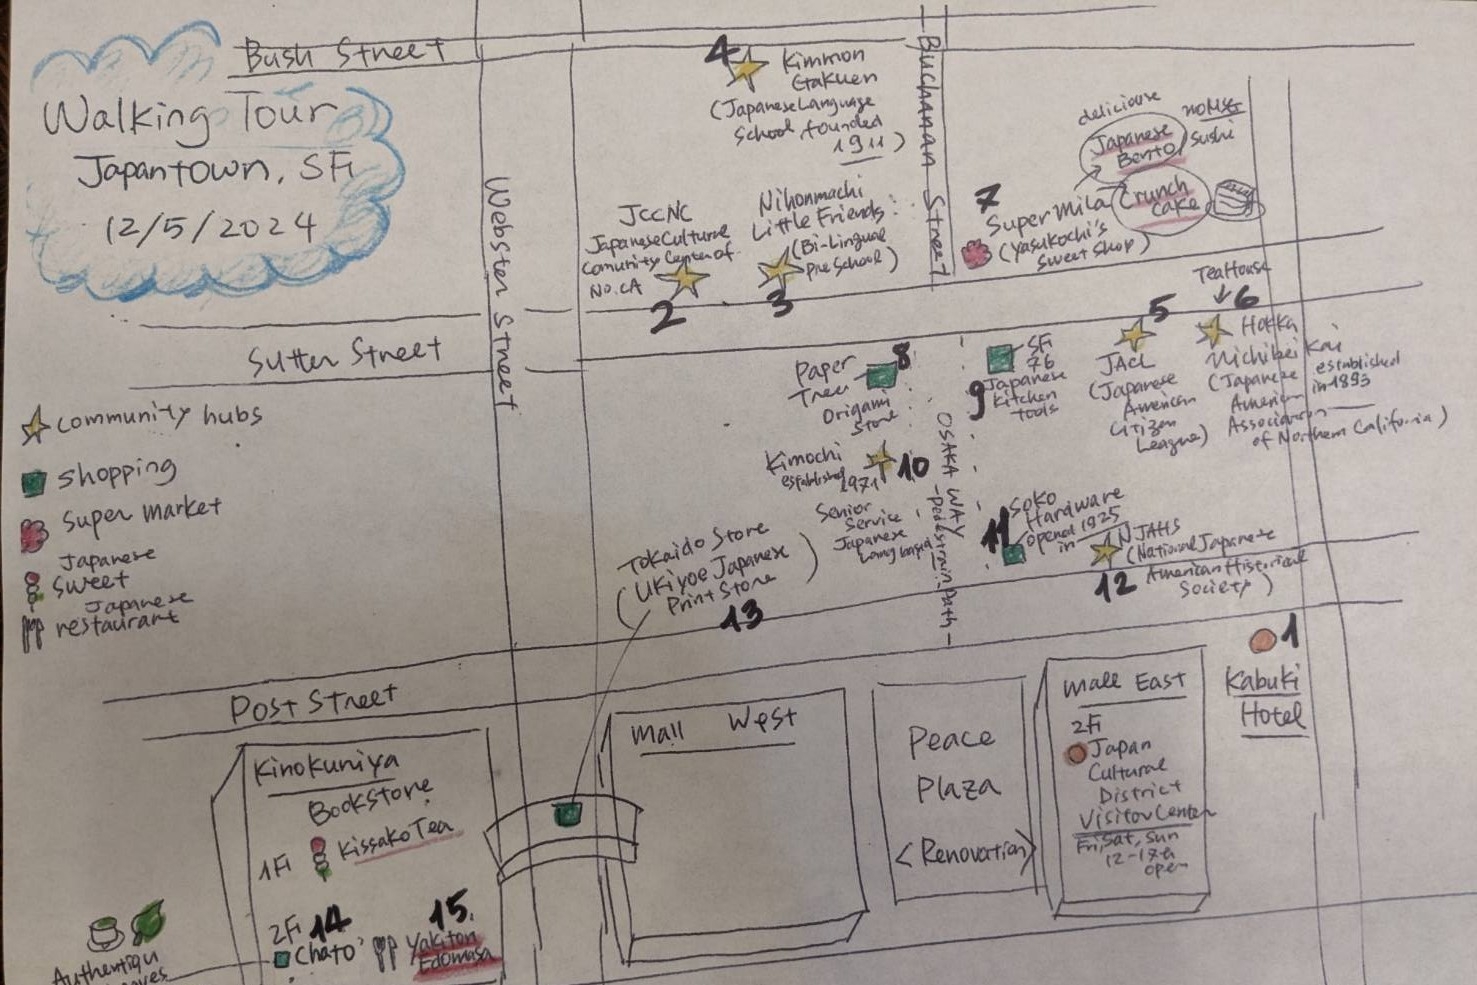 Bush Street
Walking Tour
Japantown, SF
12/5/2024
Webster Street
Buchanan Street
4
Kimmon
Gakuen
(Japanese Language
School, founded
1911)
JCCNC
Japanese Cultural
Comunity Center of
No. CA
2
Nihonmachi
Little Friends
(Bi-Lingual
pre School)
3
deliciouse
Japanese
Bento
no MSG
Sushi
7
Super Mila
(Yasukochi's
Sweet Shop)
Crunch
Cake
Sutter Street
Tea House
5
JACL
(Japanese
American
Citizen
League)
6
Hokka
Nichibei Kai
(Japanese
American
Association
of Northern California)
established
in 1893
Paper
Tree
8
Origami
Store
9
SF
76
Japanese
Kitchen
tools
Kimochi
established
1971
10
Senior
Service
Japanese
Lang based
OSAKA WAY
-Pedestrain-Path-
11
Soko
Hardware
opened
in 1925
12
NJAHS
(National Japanese
American Historical
Society)
community hubs
shopping
Super market
Japanese
sweet
Japanese
restaurant
Tokaido Store
(Ukiyoe Japanese
Print Store)
13
Post Street
1
Kabuki
Hotel
Kinokuniya
Bookstore
1F
Kissako Tea
2F
14
Chato
15.
Yakiton
Edomasa
Mall West
Peace
Plaza
<Renovation>
Mall East
2F
Japan
Cultural
District
Visitor Center
Fri, Sat, Sun
open